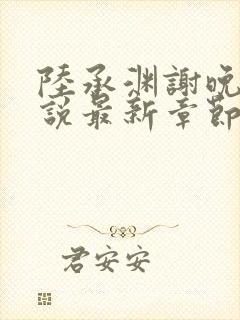 陸承淵謝晚
說最新章節
君安安